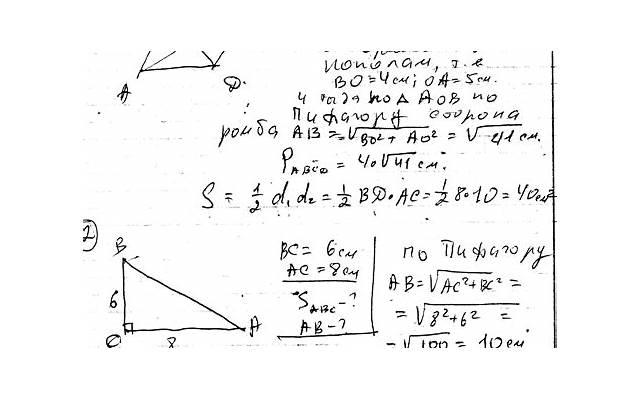 пополам, т.е
BO=4см; OA=5см.
и тогда по Δ AOB по
Пифагору сторона
ромба AB = √BO²+AO² = √41 см.
A
D.
P ABCD = 4·√41 см.
S = 1/2 d₁d₂ = 1/2 BD·AC = 1/2 8·10 = 40см²
2)
B
6
C
8
A
BC = 6см
AC = 8см
S ABC - ?
AB - ?
по Пифагору
AB = √AC²+BC² =
= √8²+6² =
= √100 = 10см